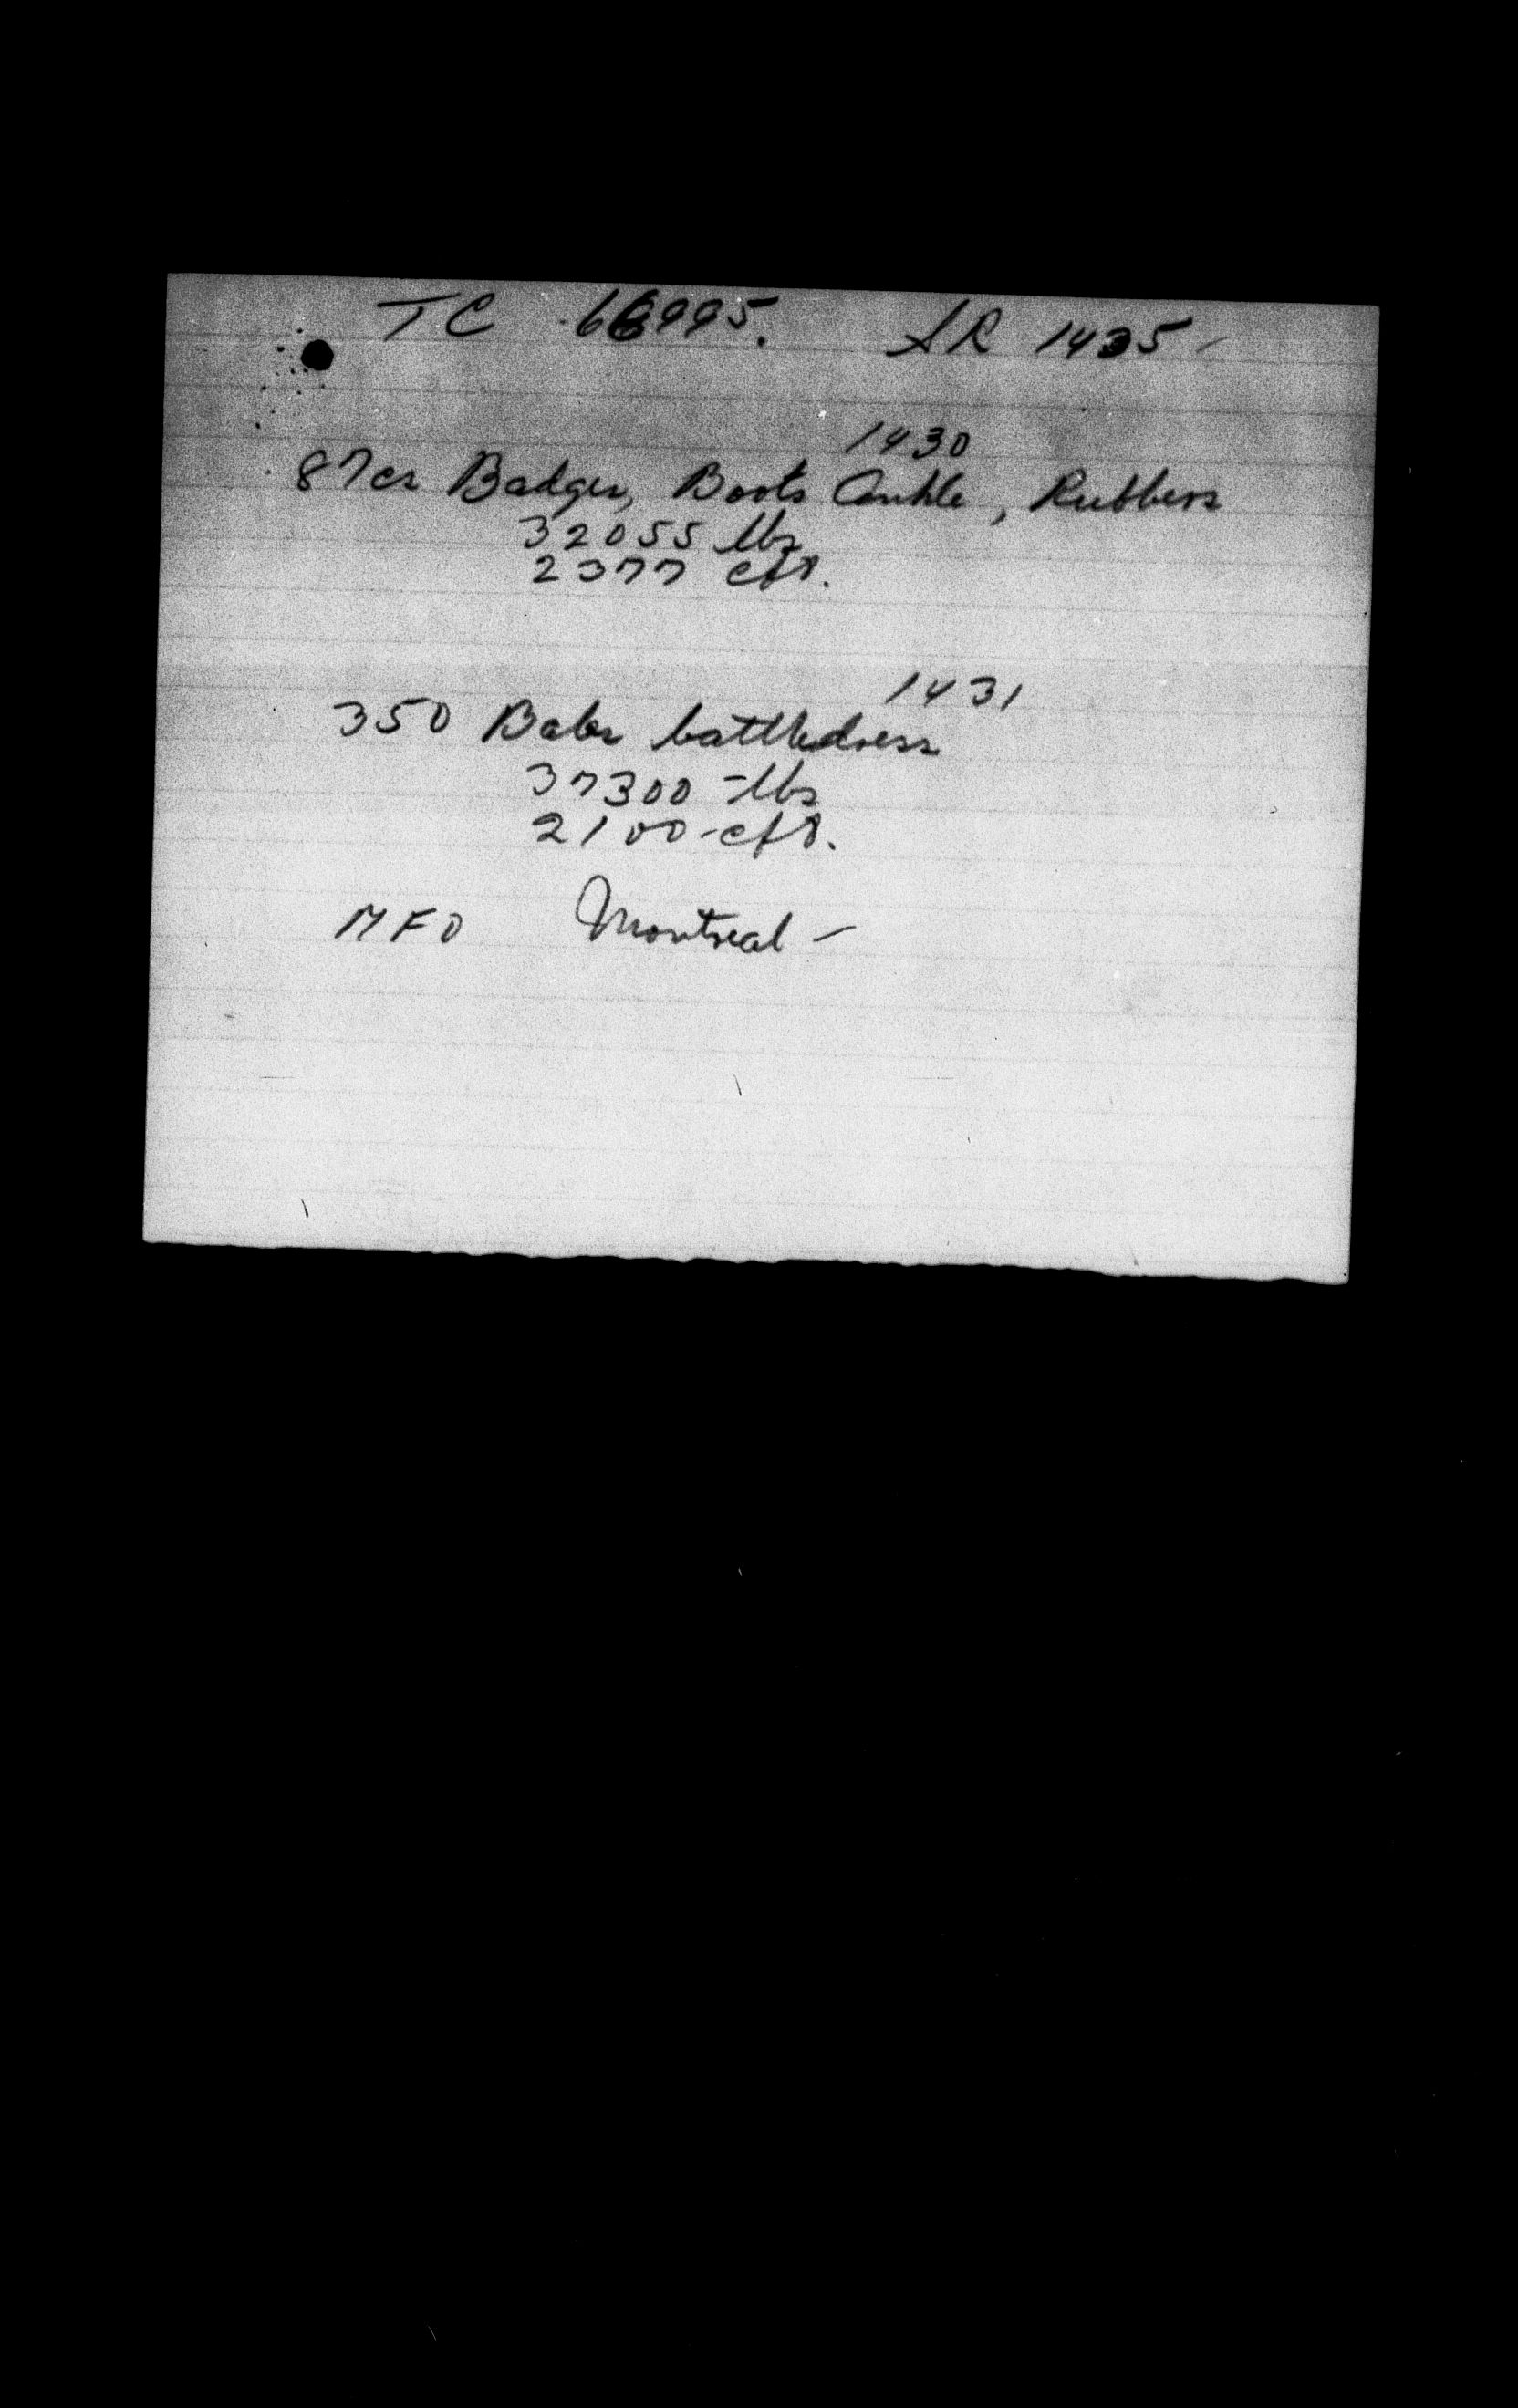 TC 66995. SR 1435 -
1430
87 cs Badges, Boots Ankle, Rubbers
32055 lbs
2377 cft.
1431
350 Bales battledress
37300 - lbs
2100 - cft.
MFO Montreal -